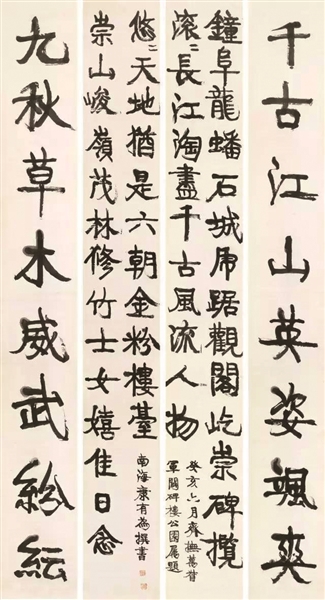 千古江山英姿颯爽
鐘阜龍蟠石城虎踞觀閣屹崇碑攬
滾〻長江淘盡千古風流人物
癸亥六月齊撫萬督
軍閱碑樓公園屬題
九秋草木威武紛紜
崇山峻嶺茂林修竹士女嬉佳日念
悠〻天地猶是六朝金粉樓臺
南海康有為撰書